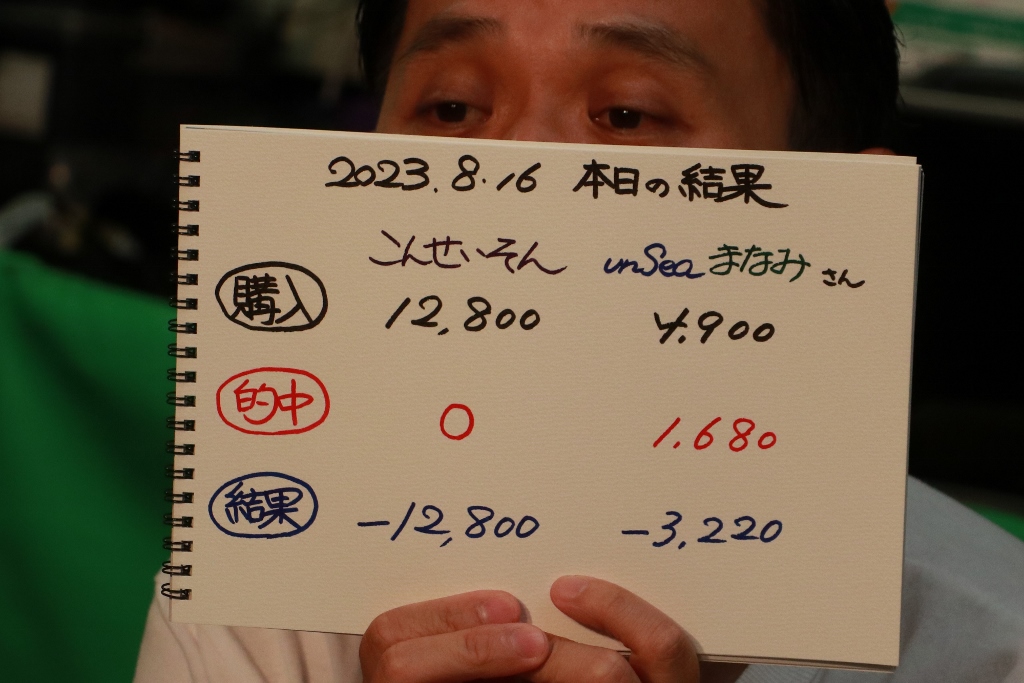 2023.8.16 本日の結果
こんせいそん unSea まなみ さん
購入 12,800 4.900
的中 0 1.680
結果 -12,800 -3,220